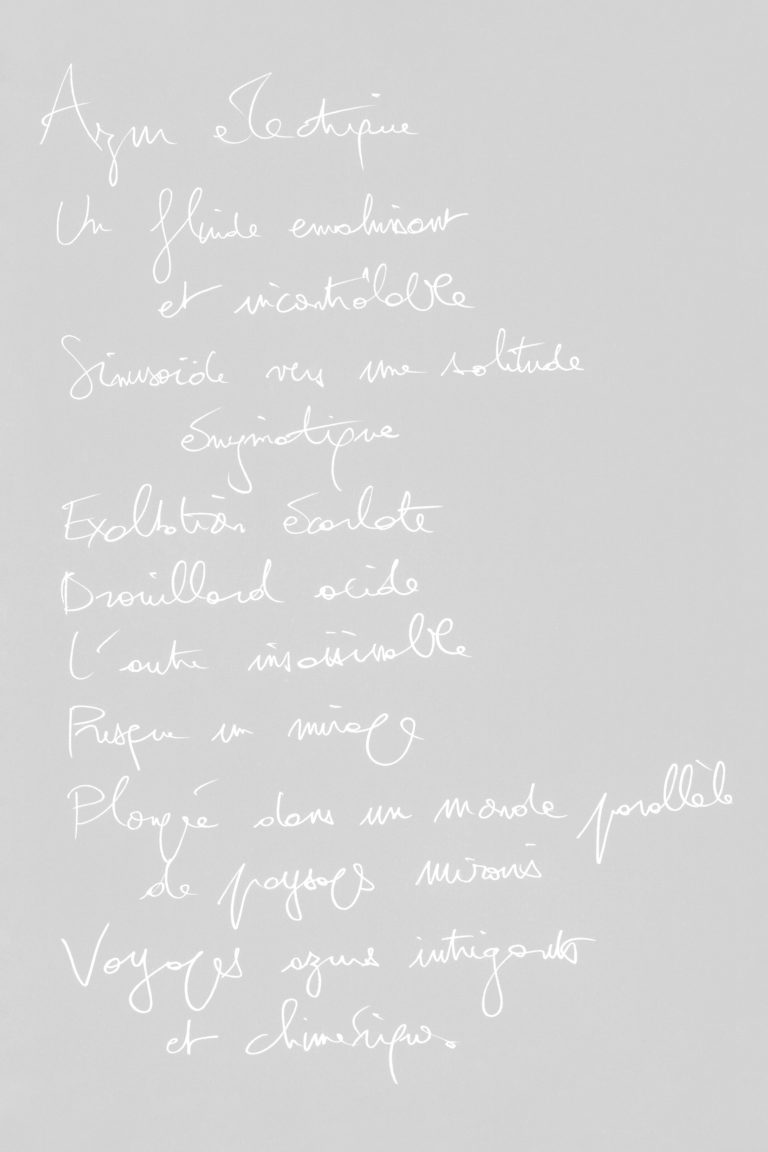 Azur électrique
Un fluide envahissant
et incontrôlable
Sinusoïde vers une solitude
énigmatique
Exaltation écarlate
Brouillard acide
L'autre insaisissable
Presque un mirage
Plongée dans un monde parallèle
de paysages
Voyages azurs intrigants
et chimériques.